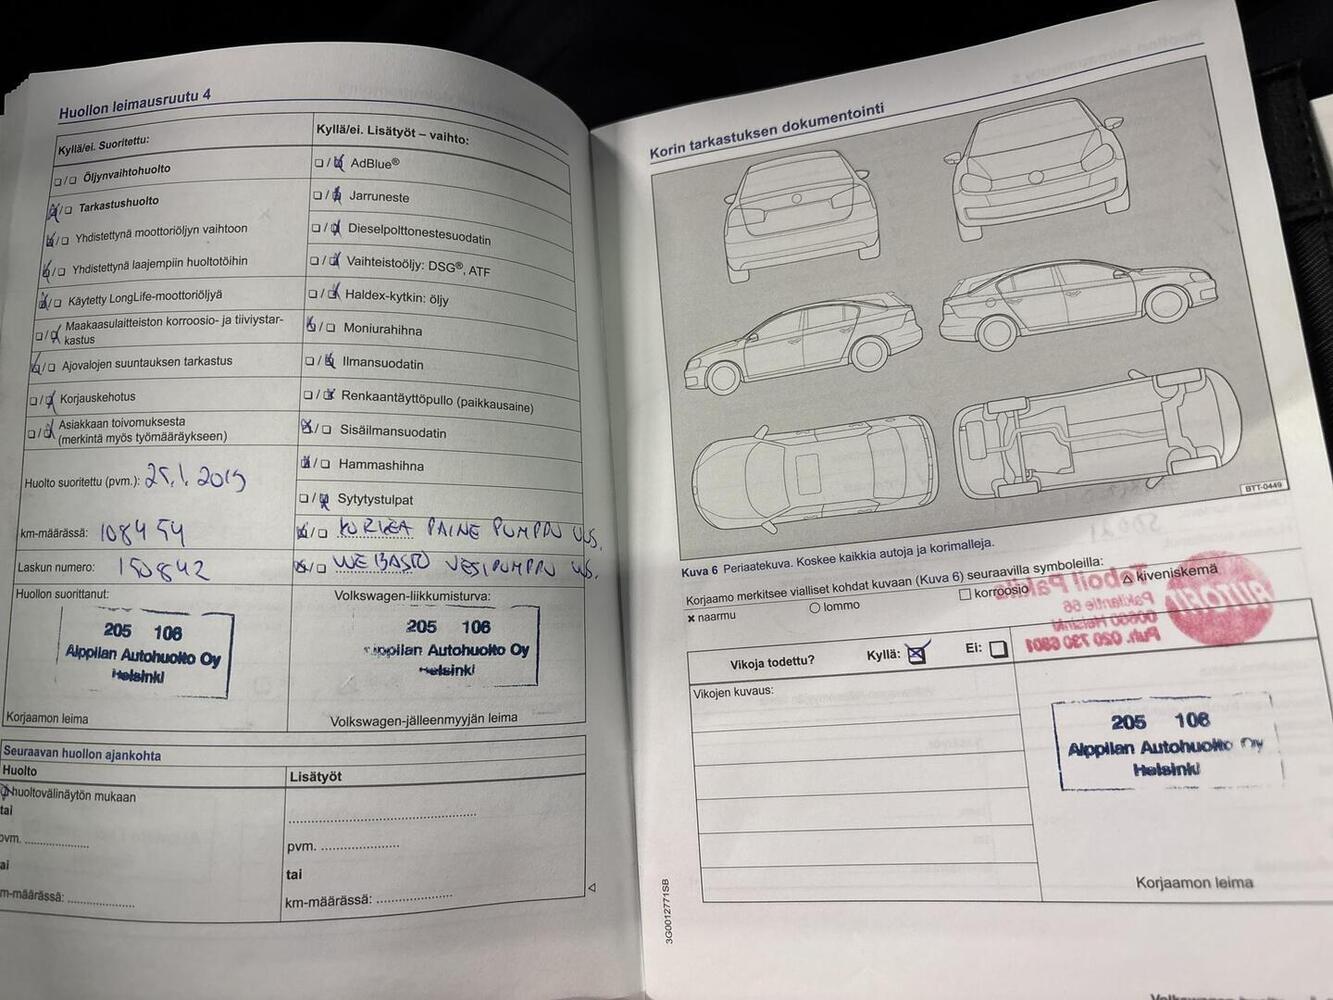 Huollon leimausruutu 4
Kyllä/ei. Suoritettu:
☐/☐ Öljynvaihtohuolto
☒/☐ Tarkastushuolto
☒/☐ Yhdistettynä moottoriöljyn vaihtoon
☒/☐ Yhdistettynä laajempiin huoltotöihin
☒/☐ Käytetty LongLife-moottoriöljyä
☐/☒ Maakaasulaitteiston korroosio- ja tiiviystar-
kastus
☒/☐ Ajovalojen suuntauksen tarkastus
☐/☒ Korjauskehotus
☐/☒ Asiakkaan toivomuksesta
(merkintä myös työmääräykseen)
Huolto suoritettu (pvm.): 25.1.2019
km-määrässä: 108454
Laskun numero: 150842
Huollon suorittanut:
205 106
Alppilan Autohuolto Oy
Helsinki
Korjaamon leima
Kyllä/ei. Lisätyöt – vaihto:
☐/☒ AdBlue®
☐/☒ Jarruneste
☐/☒ Dieselpolttonestesuodatin
☐/☒ Vaihteistoöljy: DSG®, ATF
☐/☒ Haldex-kytkin: öljy
☒/☐ Moniurahihna
☐/☒ Ilmansuodatin
☐/☒ Renkaantäyttöpullo (paikkausaine)
☒/☐ Sisäilmansuodatin
☒/☐ Hammashihna
☐/☒ Sytytystulpat
☒/☐ KORKEA PAINE PUMPPU UUS.
☒/☐ WEBASTO VESIPUMPPU UUS.
Volkswagen-liikkumisturva:
205 106
Alppilan Autohuolto Oy
Helsinki
Volkswagen-jälleenmyyjän leima
Seuraavan huollon ajankohta
Huolto
huoltovälinäytön mukaan
tai
pvm. ....................
tai
km-määrässä: ....................
Lisätyöt
........................................
pvm. ....................
tai
km-määrässä: ....................
Korin tarkastuksen dokumentointi
BTT-0449
Kuva 6 Periaatekuva. Koskee kaikkia autoja ja korimalleja.
Korjaamo merkitsee vialliset kohdat kuvaan (Kuva 6) seuraavilla symboleilla:
✖ naarmu ○ lommo ☐ korroosio △ kiveniskemä
Vikoja todettu? Kyllä: ☒ Ei: ☐
Vikojen kuvaus:
205 106
Alppilan Autohuolto Oy
Helsinki
Korjaamon leima
3G0012771SB
Teboil Pakila
Pakilantie 66
00660 Helsinki
Puh. 020 730 6801